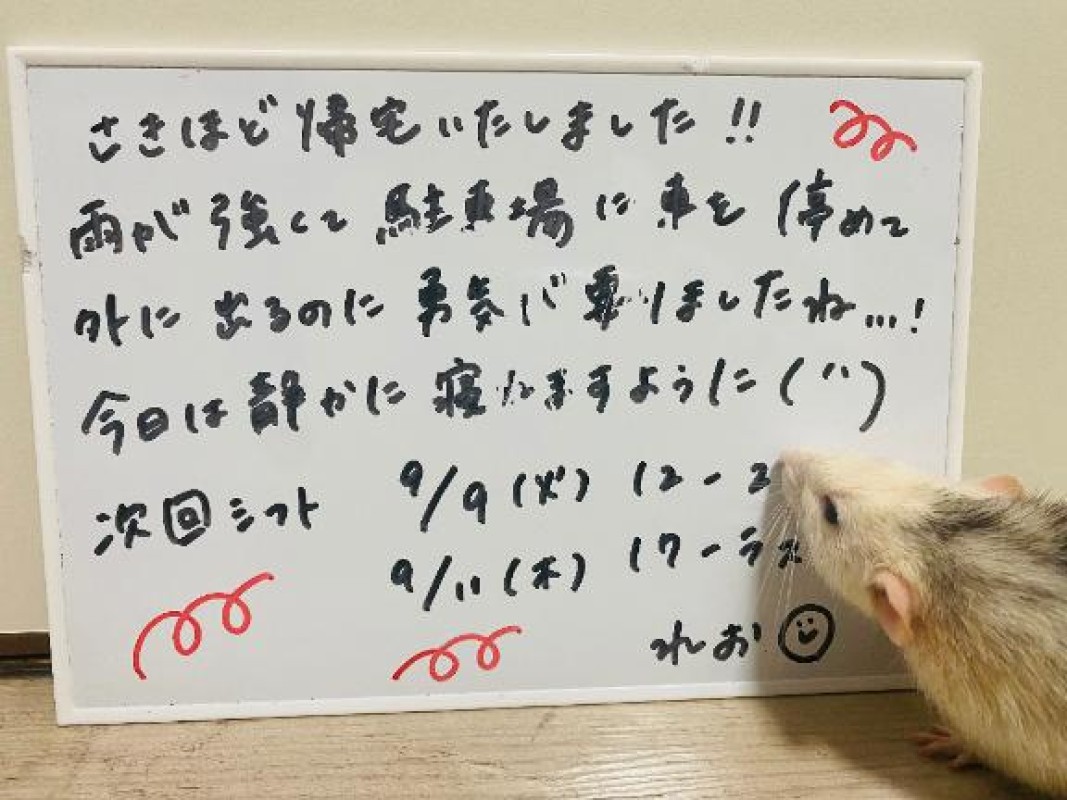 さきほど帰宅いたしました!!
雨が強くて駐車場に車を停めて
外に出るのに勇気が要りましたね...!
今日は静かに寝れますように(¨)
次回シフト 9/9(火) 12-2
9/11(木) 17-ラス
れお